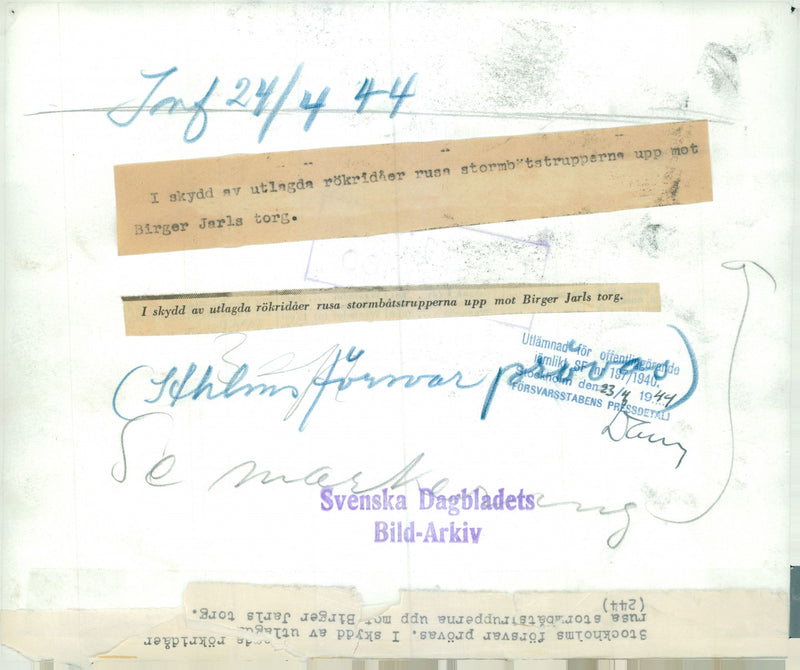 Inf 24/4 44
I skydd av utlagda rökridåer rusa stormbåtstrupperna upp mot
Birger Jarls torg.
I skydd av utlagda rökridåer rusa stormbåtstrupperna upp mot Birger Jarls torg.
(Sthlms försvar prövas)
Utlämnad för offentliggörande
jämlikt SF nr 197/1940.
Stockholm den 23/4 1944
FÖRSVARSSTABENS PRESSDETALJ
Se markering
Svenska Dagbladets
Bild-Arkiv
Stockholms försvar prövas. I skydd av utlagda rökridåer
rusa stormbåtstrupperna upp mot Birger Jarls torg.
(244)